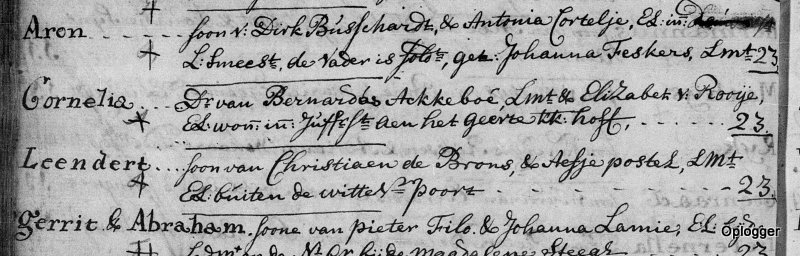 Aron ... soon v: Dirk Busschardt, & Antonia Cortelje, El: in:
L: Smeest, de Vader is Solt, get: Johanna Feskers, Lmt 23
Cornelia .... Dr van Bernardus Akkeboé, Lmt & Elizabet v: Rooije,
El: won: in: Juffrst aen het Geerte kk: hoff, ...... 23.
Leendert ... soon van Christiaen de Brons, & Aefje postel, Lmt
El: buiten de witte Vr poort - - - - - 23.
gerrit & Abraham. soone van pieter Filo. & Johanna Lamie; El:
Magdalene Steegh 23
Oplogger